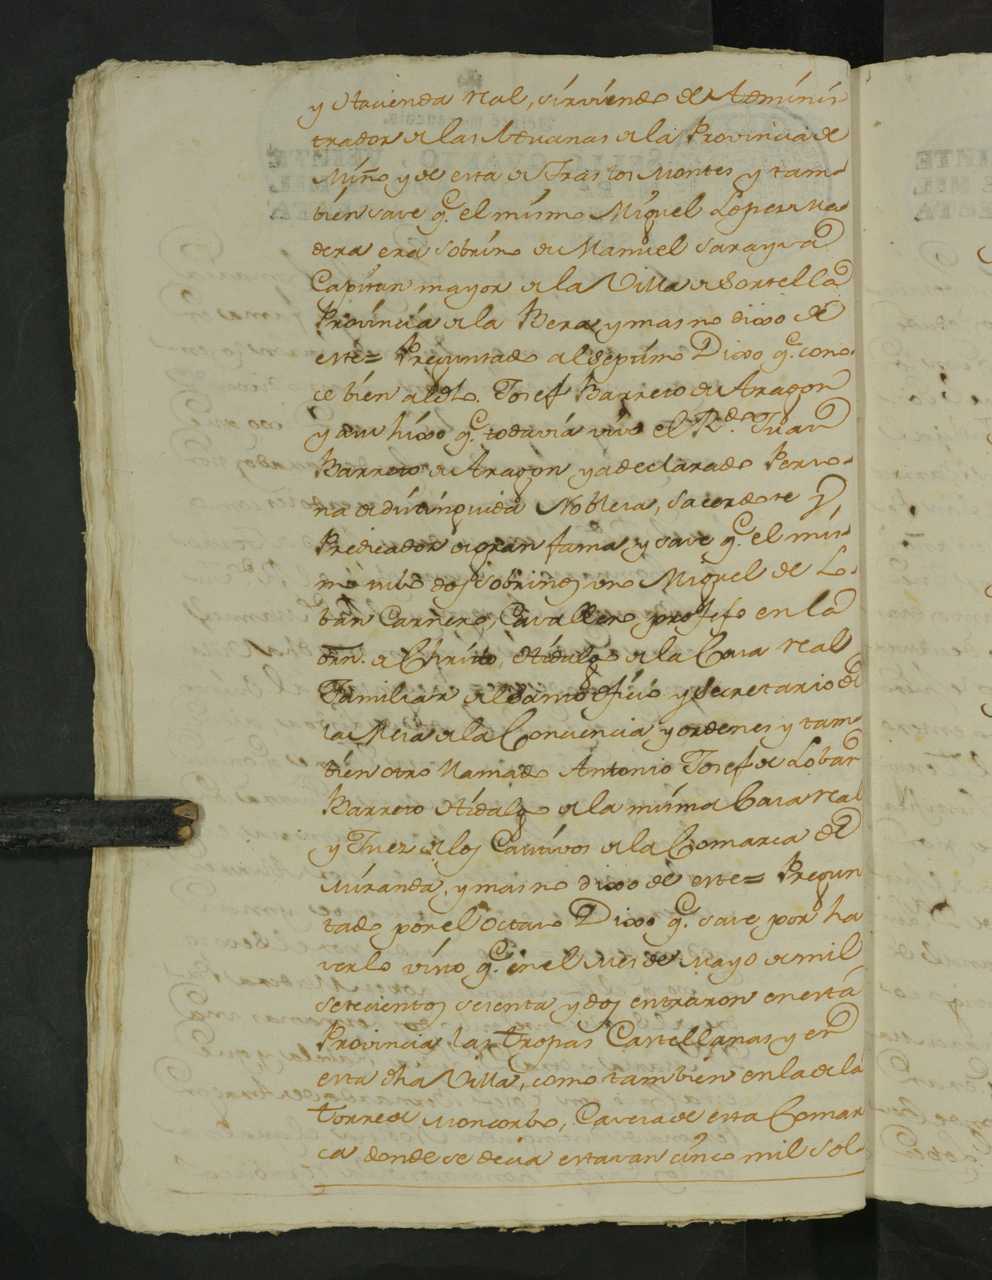 y Hacienda real, sirviendo de Adminis
trador de las Aduanas de la Provincia de
Miño y de esta de Tras los Montes y tam-
bien save q.e el mismo Miguel Lopes Ma-
dera era sobrino de Manuel Sarayva
Capitan mayor de la Villa de Sortella
Provincia de la Bera, y mas no dixo de
este= Preguntado al septimo Dixo q.e cono-
ce bien al dho. Josef Barreto de Aragon
y su hixo q.e todavia vive el R.do Juan
Barreto de Aragon ya declarado Perso-
na de distinguida Nobleza, Sacerdote y
Predicador de gran fama, y save q.e el mis-
mo tubo dos sobrinos, uno Miguel de Lo-
ban Carnero, Cavallero profeso en la
orn. de Christo, Hidalgo de la Casa real
Familiar del santo oficio y Secretario de
la Mesa de la Conciencia y ordenes y tam
bien otro llamado Antonio Josef de Loban
Barreto Hidalgo de la misma Casa real
y Juez de los Cautivos de la Comarca de
Miranda, y mas no dixo de este= Pregun
tado por el octavo Dixo q.e save por ha
verlo visto q.e en el mes de Mayo de mil
setecientos sesenta y dos entraron en esta
Provincia las Tropas Castellanas y en
esta dha Villa, como tambien en la de la
Torre de Moncorbo, Caveza de esta Comar
ca donde se decia estavan cinco mil sol-